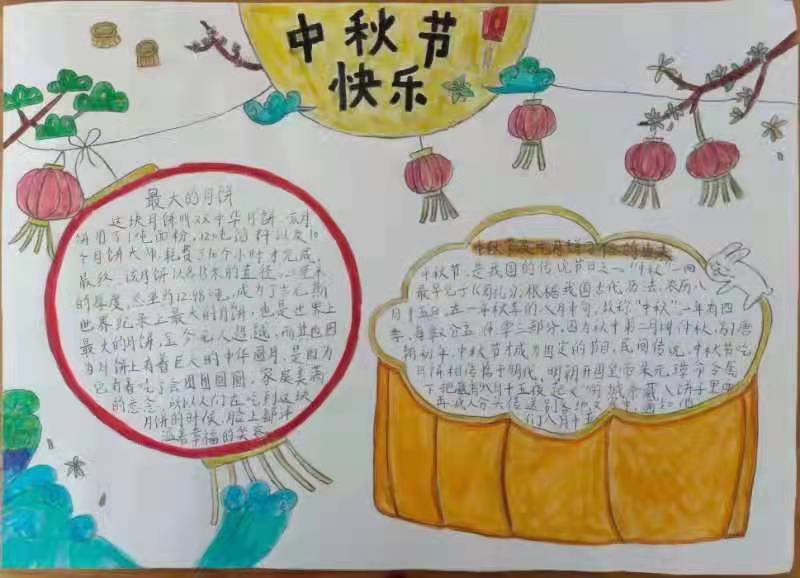 中秋节
快乐
最大的月饼
这块月饼叫双中华月饼,
饼用了1吨面粉, 吨馅料以及10
个月饼大师, 耗费了10个小时才完成,
最终, 该月饼以8.15米的直径,
的厚度, 12.98吨, 成为了吉尼斯
世界纪录上最大的月饼, 也是世界上
最大的月饼, 至今无人超越, 而
为月饼上有着巨大的中华圆月, 是因为
它有着吃了会团团圆圆, 家庭美满
的意念, 所以人们在吃到这块
月饼的时候, 脸上都洋
溢着幸福的笑容
中秋节 吃月饼习俗的由来
中秋节, 是我国的传统节日之一, "中秋"一词
最早见于《周礼》, 根据我国古代历法, 农历八
月十五日, 在一年秋季的八月中旬, 故称"中秋", 一年有四
季, 每季分孟、仲、季三部分, 因为秋中第二月叫仲秋, 到唐
朝初年, 中秋节才成为固定的节日, 民间传说, 中秋节吃
月饼相传始于明代, 明朝开国皇帝朱元璋
下把 八月十五夜起义 藏入饼子里
再派人分头传送到各地
们八月十五